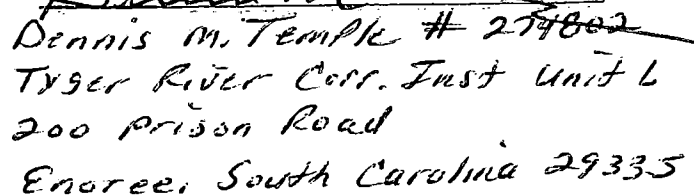 Dennis M. Temple # 274802
Tyger River Corr. Inst Unit L
200 Prison Road
Enoree, South Carolina 29335